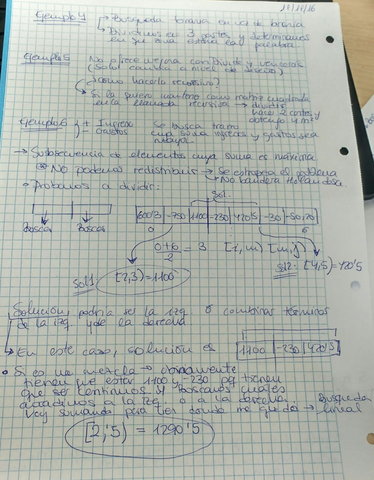 11/11/16
Ejemplo 4 → Búsqueda ternaria en vez de binaria
→ Dividimos en 3 partes y determinamos
en qué zona estaría la palabra
Ejemplo 5 No ofrece mejora con divide y vencerás
¿Cómo hacerlo recursivo?
→ Si lo quiero mantener como matriz cuadrada
en la llamada recursiva →
hace 2 cortes y
obtengo 4 m
Ejemplo 6 + Ingreso Se busca tramo
- Gastos cuya suma ingresos y gastos sea
mayor
→ Subsecuencia de elementos cuya suma es máxima
No podemos redistribuir → Se estropea el problema
→ No bandera Holandesa
• Probamos a dividir:
Sol.
-750 1100 -230 420'5 -30
buscar buscar 0 6
0+6 / 2 = 3 [i, m) [m, j)
sol 1 [2,3) = 1100 sol 2: [4,5) = 420'5
Solución, podría ser la izq ó combinar términos
de la izq y de la derecha
→ En este caso, solución es 1100 -230 420'5
• Si es una mezcla → obviamente
tienen que estar 1100 y -230 pq tienen
que ser continuos y buscamos cuales
añadimos a la izq o a la derecha. Búsqueda
Voy sumando para ver donde me quedo → lineal
[2,5) = 1290'5